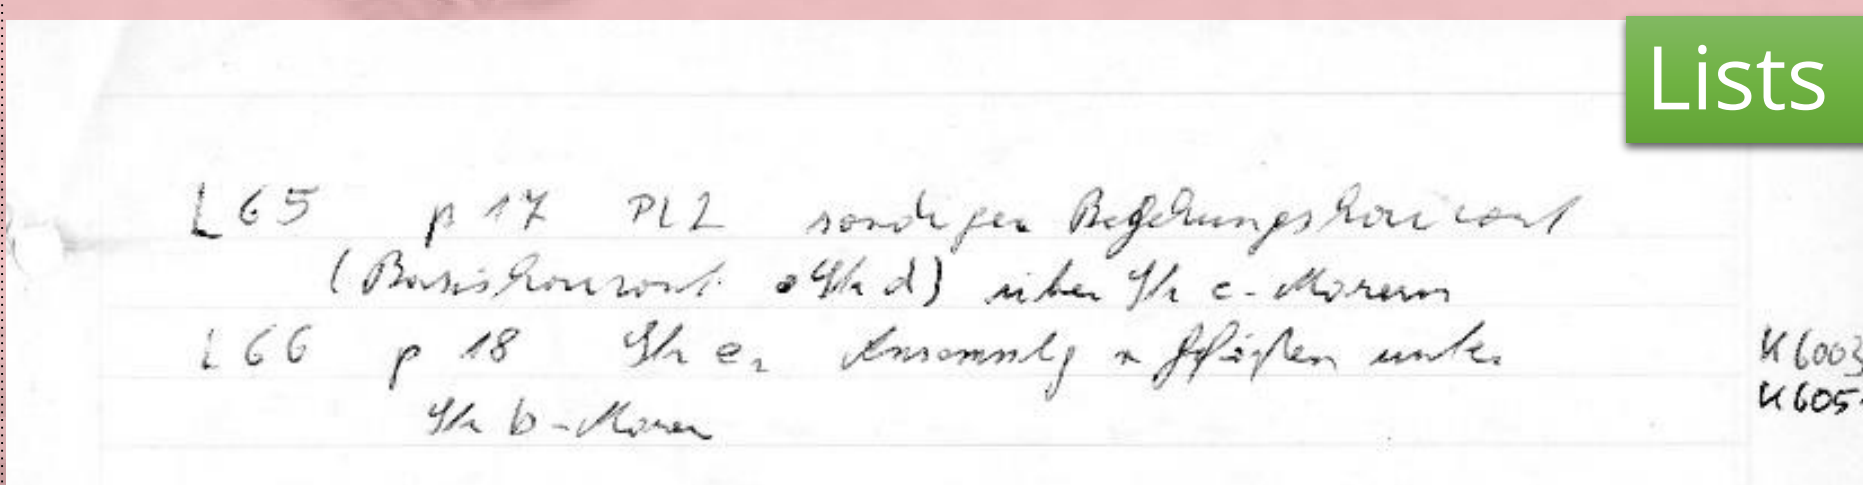 Lists
L65 p 17 Pl 2 sandiger Begehungshorizont
(Basishorizont Str d) über Str c-Mauern
L66 p 18 Str e2 Ansammlg v Gefäßen unter
Str b-Mauer
K6003
K605